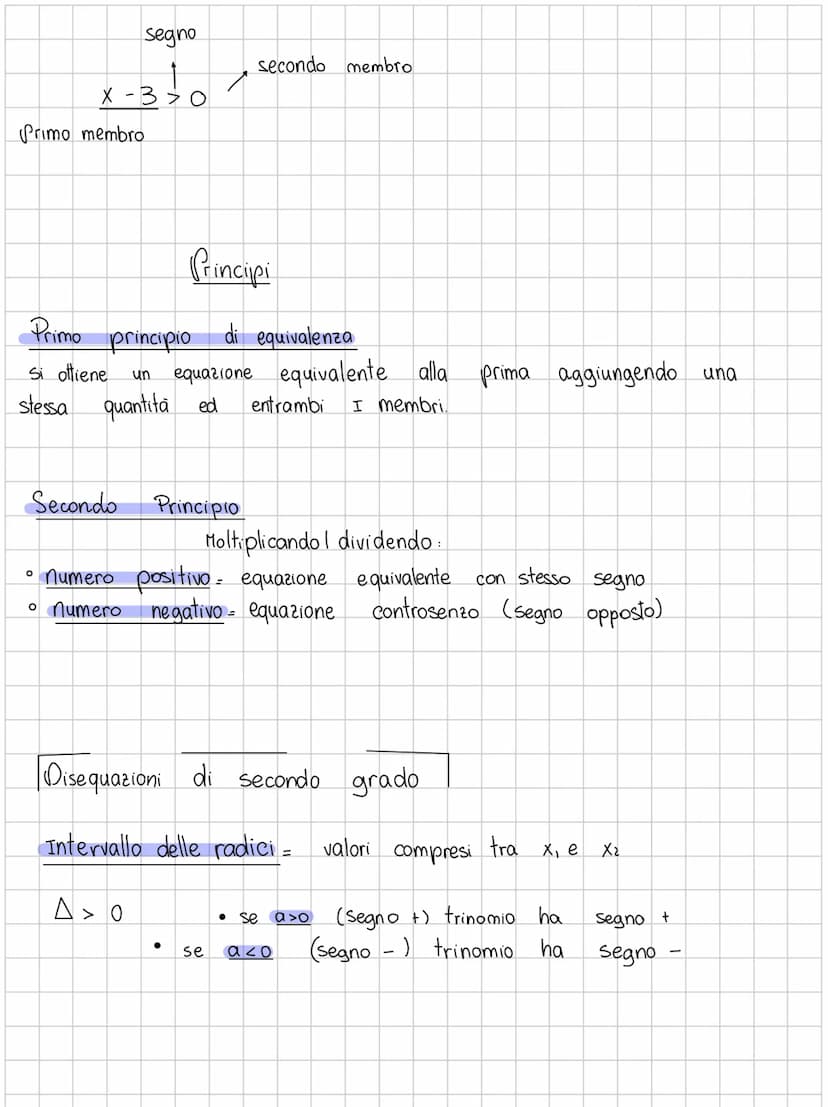 segno
secondo membro
x - 3 > 0
Primo membro
Principi
Primo principio di equivalenza
si ottiene un equazione equivalente alla prima aggiungendo una
stessa quantità ed entrambi I membri.
Secondo Principio
Moltiplicando | dividendo:
° numero positivo = equazione equivalente con stesso segno
° numero negativo = equazione controsenzo (segno opposto)
Disequazioni di secondo grado
Intervallo delle radici = valori compresi tra x₁ e x₂
Δ > 0 • se a>0 (segno +) trinomio ha segno +
• se a<0 (segno -) trinomio ha segno -